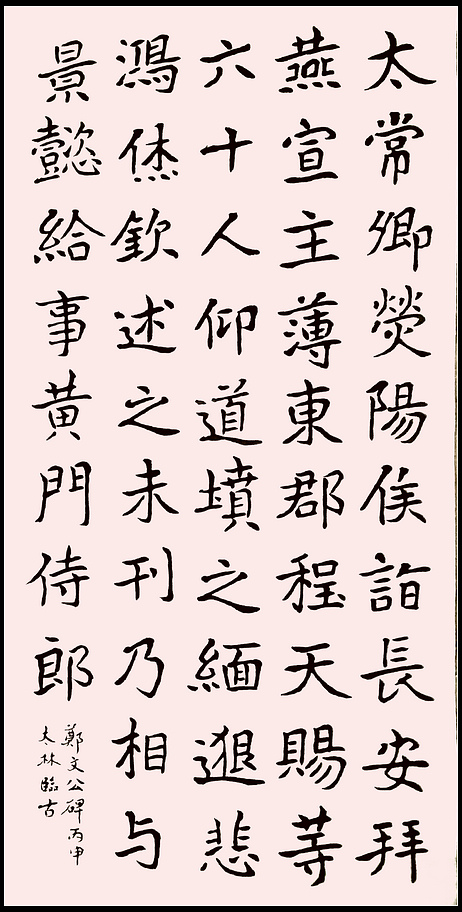 太常卿熒陽侯詣長安拜
燕宣主薄東郡程天賜等
六十人仰道墳之緬邈悲
鴻休欽述之未刊乃相与
景懿給事黃門侍郎
鄭文公碑丙申
太林臨古